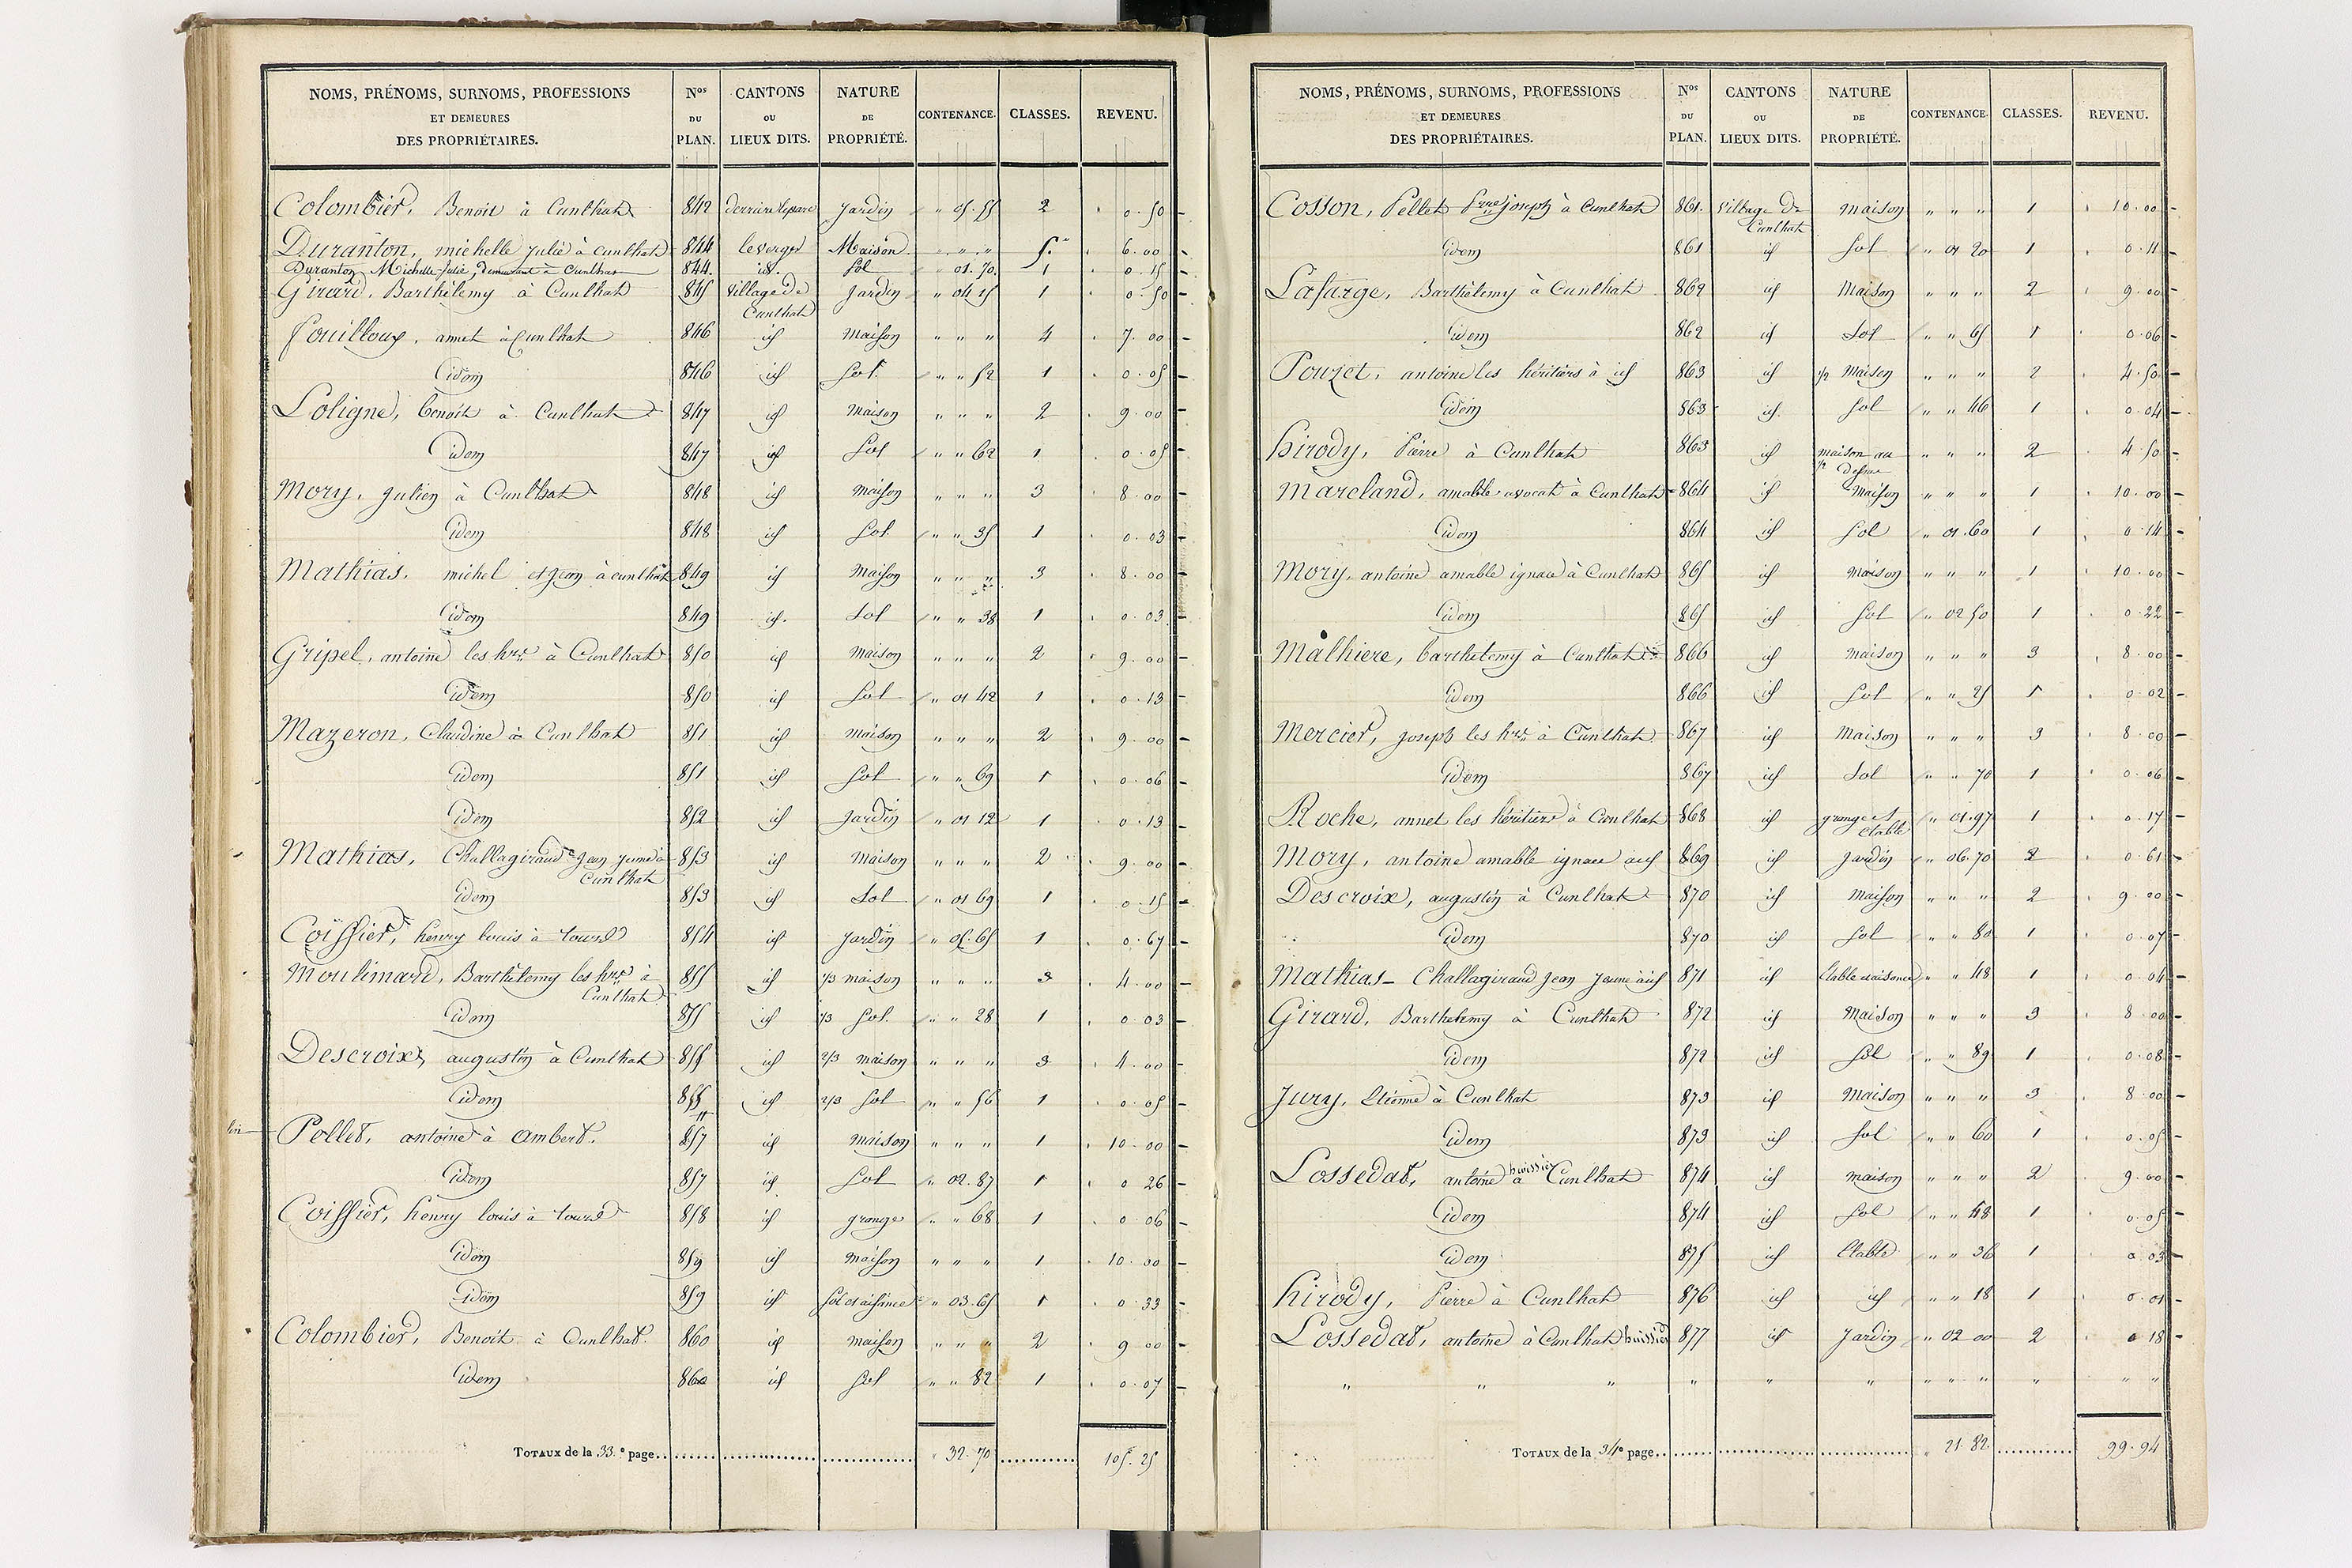 NOMS, PRÉNOMS, SURNOMS, PROFESSIONS ET DEMEURES DES PROPRIÉTAIRES. Nos DU PLAN. CANTONS OU LIEUX DITS. NATURE DE PROPRIÉTÉ. CONTENANCE. CLASSES. REVENU.
Colombier, Benoit à Cunlhat 842 derriere Jardin " 05.55 2 0.50
Duranton, michelle julie à cunlhat 844 le verger Maison " " " 5. 6.00
Duranton Michelle-Julie, demeurant à Cunlhat 844. id. Sol 01.70. 1 0.15
Girard, Barthélemy à Cunlhat 845 Village de Cunlhat Jardin " 04 15 1 0.50
Fouilloux, annet à Cunlhat 846 id maison " " " 4 7.00
idem 846 id Sol. " " 52 1 0.05
Loligne, benoit à Cunlhat 847 id maison " " " 2 9.00
idem 847 id Sol " " 62 1 0.05
Mory, Julien à Cunlhat 848 id maison " " " 3 8.00
idem 848 id Sol. " " 35 1 0.03
Mathias, michel et jean à cunlhat 849 id Maison " " " 3 8.00
idem 849 id. Sol " " 38 1 0.03
Gripel, antoine les hrs à Cunlhat 850 id maison " " " 2 9.00
idem 850 id Sol " 01 42 1 0.13
Mazeron, Claudine à Cunlhat 851 id maison " " " 2 9.00
idem 851 id Sol " " 69 1 0.06
idem 852 id Jardin " 01 12 1 0.13
Mathias, Challagiraud Jean jeune à Cunlhat 853 id maison " " " 2 9.00
idem 853 id Sol " 01 69 1 0.15
Coiffier, henry louis à tours 854 id jardin " 05.65 1 0.67
Moulimard, Barthélemy les hrs à Cunlhat 855 id 1/3 maison " " " 3 4.00
idem 855 id 1/3 Sol. " " 28 1 0.03
Descroix, augustin à Cunlhat 855 id 2/3 maison " " " 3 4.00
idem 855 id 2/3 Sol " " 56 1 0.05
Pellet, antoine à ambert. 857 id maison " " " 1 10.00
idem 857 id Sol " 02.87 1 0 26
Coiffier, henry louis à tours 858 id grange " " 68 1 0.06
idem 859 id maison " " " 1 10.00
idem 859 id Sol et aisance " 03.65 1 0.33
Colombier, Benoit à Cunlhat. 860 id maison " " " 2 9 00
idem 860 id Sol " " 82 1 0.07
TOTAUX de la 33.e page " 32.70 105.25
NOMS, PRÉNOMS, SURNOMS, PROFESSIONS ET DEMEURES DES PROPRIÉTAIRES. Nos DU PLAN. CANTONS OU LIEUX DITS. NATURE DE PROPRIÉTÉ. CONTENANCE. CLASSES. REVENU.
Cosson, Pellet joseph à Cunlhat 861. Village de Cunlhat maison " " " 1 10.00
idem 861 id Sol " 01 20 1 0.11
Lafarge, Barthélemy à Cunlhat 862 id Maison " " " 2 9.00
idem 862 id Sol " " 65 1 0.06
Pouzet, antoine les héritiers à id 863 id 1/2 Maison " " " 2 4.50
idem 863 id. Sol " " 46 1 0.04
hirody, Pierre à Cunlhat 863 id maison au 1/2 " " " 2 4.50
Marcland, amable avocat à Cunlhat 864 id Maison " " " 1 10.00
idem 864 id Sol " 01.60 1 0.14
Mory, antoine amable ignace à Cunlhat 865 id maison " " " 1 10.00
idem 865 id Sol " 02 50 1 0.22
Malhiere, barthelemy à Cunlhat 866 id maison " " " 3 8.00
idem 866 id Sol " " 25 1 0.02
Mercier, joseph les hrs à Cunlhat 867 id Maison " " " 3 8.00
idem 867 id Sol " " 70 1 0.06
Roche, annet les héritiers à Cunlhat 868 id grange et étable " 01.97 1 0.17
Mory, antoine amable ignace à id 869 id Jardin " 06.70 2 0.61
Descroix, augustin à Cunlhat 870 id Maison " " " 2 9.00
idem 870 id Sol " " 80 1 0.07
Mathias- Challagiraud Jean Jeune à id 871 id Etable et aisance " " 48 1 0.04
Girard, Barthelemy à Cunlhat 872 id Maison " " " 3 8.00
idem 872 id Sol " " 89 1 0.08
Jury, Etienne à Cunlhat 873 id Maison " " " 3 8.00
idem 873 id Sol " " 60 1 0.05
Lossedat, antoine huissier à Cunlhat 874 id maison " " " 2 9.00
idem 874 id Sol " " 48 1 0.05
idem 875 id Etable " " 36 1 0.03
hirody, Pierre à Cunlhat 876 id id " " 18 1 0.01
Lossedat, antoine à Cunlhat huissier 877 id Jardin " 02 00 2 0 18
" " " " " " " " " " " "
TOTAUX de la 34e page " 21.82 99.94